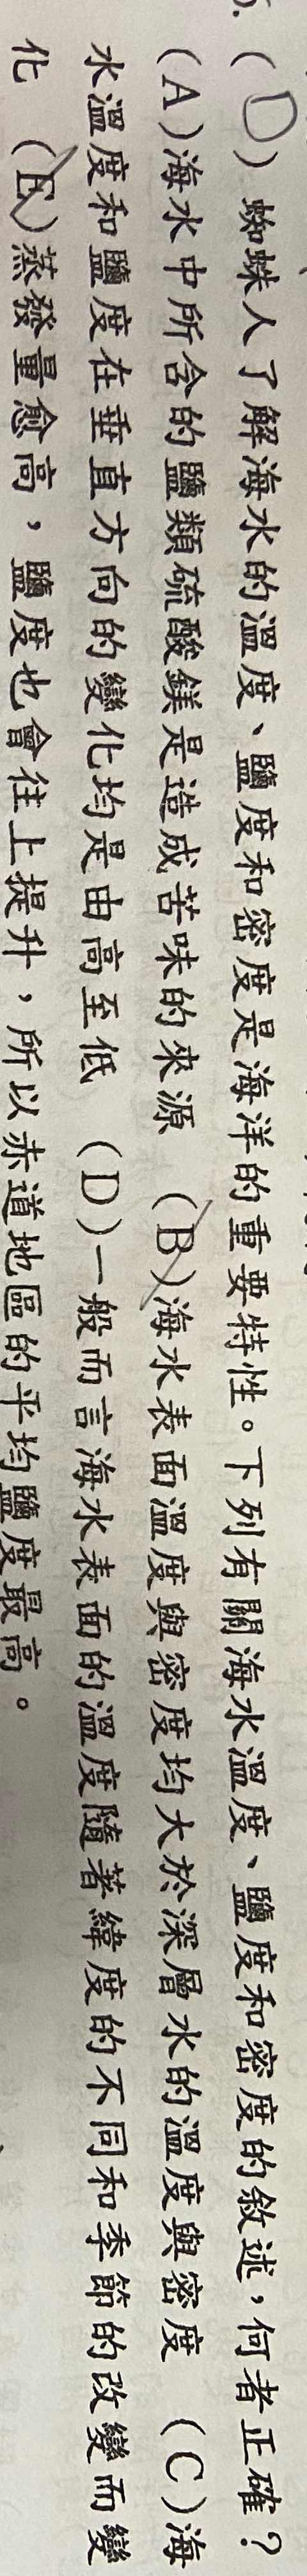 (D) 蜘蛛人了解海水的溫度、鹽度和密度是海洋的重要特性。下列有關海水溫度、鹽度和密度的敘述，何者正確？
(A)海水中所含的鹽類硫酸鎂是造成苦味的來源 (B)海水表面溫度與密度均大於深層水的溫度與密度 (C)海
水溫度和鹽度在垂直方向的變化均是由高至低 (D)一般而言海水表面的溫度隨著緯度的不同和季節的改變而變
化 (E)蒸發量愈高，鹽度也會往上提升，所以赤道地區的平均鹽度最高。